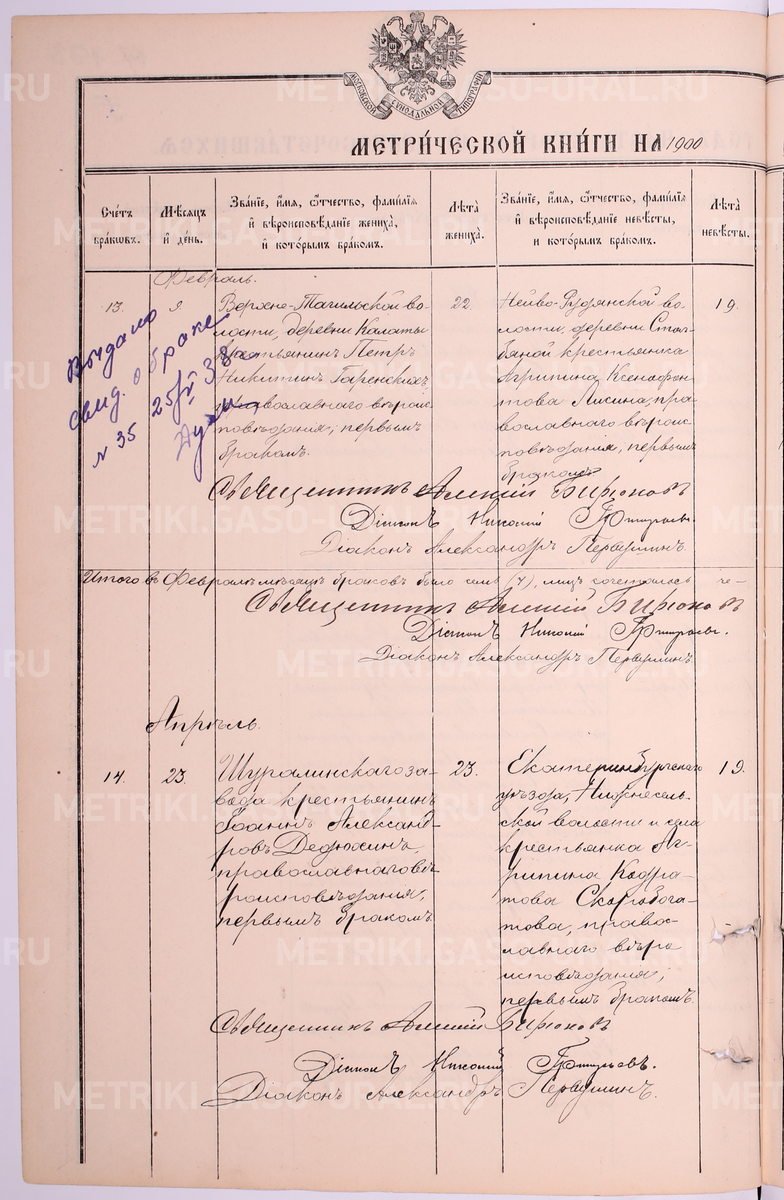 МОСКОВСКОЙ СѴНОДАЛЬНОЙ ТИПОГРАФІИ
МЕТРИ́ЧЕСКОЙ КНИ́ГИ НА 1900
Сче́тъ бра́кѡвъ.
Мѣ́сяцъ и҆ де́нь.
Зва́нїе, и҆́мѧ, ѻ҆́тчество, фами́лїѧ
и҆ вѣроисповѣ́данїе жениха̀,
и҆ кото́рымъ бра́комъ.
Лѣ́та жениха̀.
Зва́нїе, и҆́мѧ, ѻ҆́тчество, фами́лїѧ
и҆ вѣроисповѣ́данїе невѣ́сты,
и҆ кото́рымъ бра́комъ.
Лѣ́та невѣ́сты.
Февраль.
13.
9
Верхне-Тагильской во-
лости, деревни Калаты
крестьянинъ Петръ
Никитинъ Гаренскихъ,
православнаго вѣроис
повѣданія, первымъ
бракомъ.
22.
Нейво-Рудянской во-
лости, деревни
крестьянка
Агрипина Ксенофон
това Лисина, пра-
вославнаго вѣроис
повѣданія, первымъ
бракомъ
19.
Выдано
свид. о браке
№ 35 25/V 38
Священникъ Алексій Бирюковъ
Діаконъ Николай
Діаконъ Александръ Первушинъ.
Итого въ Февралѣ мѣсяцѣ браковъ было семь (7), лицъ сочеталось че-
Священникъ Алексій Бирюковъ
Діаконъ Николай
Діаконъ Александръ Первушинъ.
Апрѣль.
14.
23.
Шуралинскаго за-
вода крестьянинъ
Іоаннъ Александ-
ровъ Дедюхинъ,
православнаго вѣ
роисповѣданія,
первымъ бракомъ.
23.
Екатеринбургскаго
уѣзда, Нижнесель-
ской волости и села
крестьянка Аг-
рипина Кодра-
това Скоробога-
това, право-
славнаго вѣро
исповѣданія,
первымъ бракомъ.
19.
Священникъ Алексій Бирюковъ
Діаконъ Николай
Діаконъ Александръ Первушинъ.
METRIKI.GASO-URAL.RU